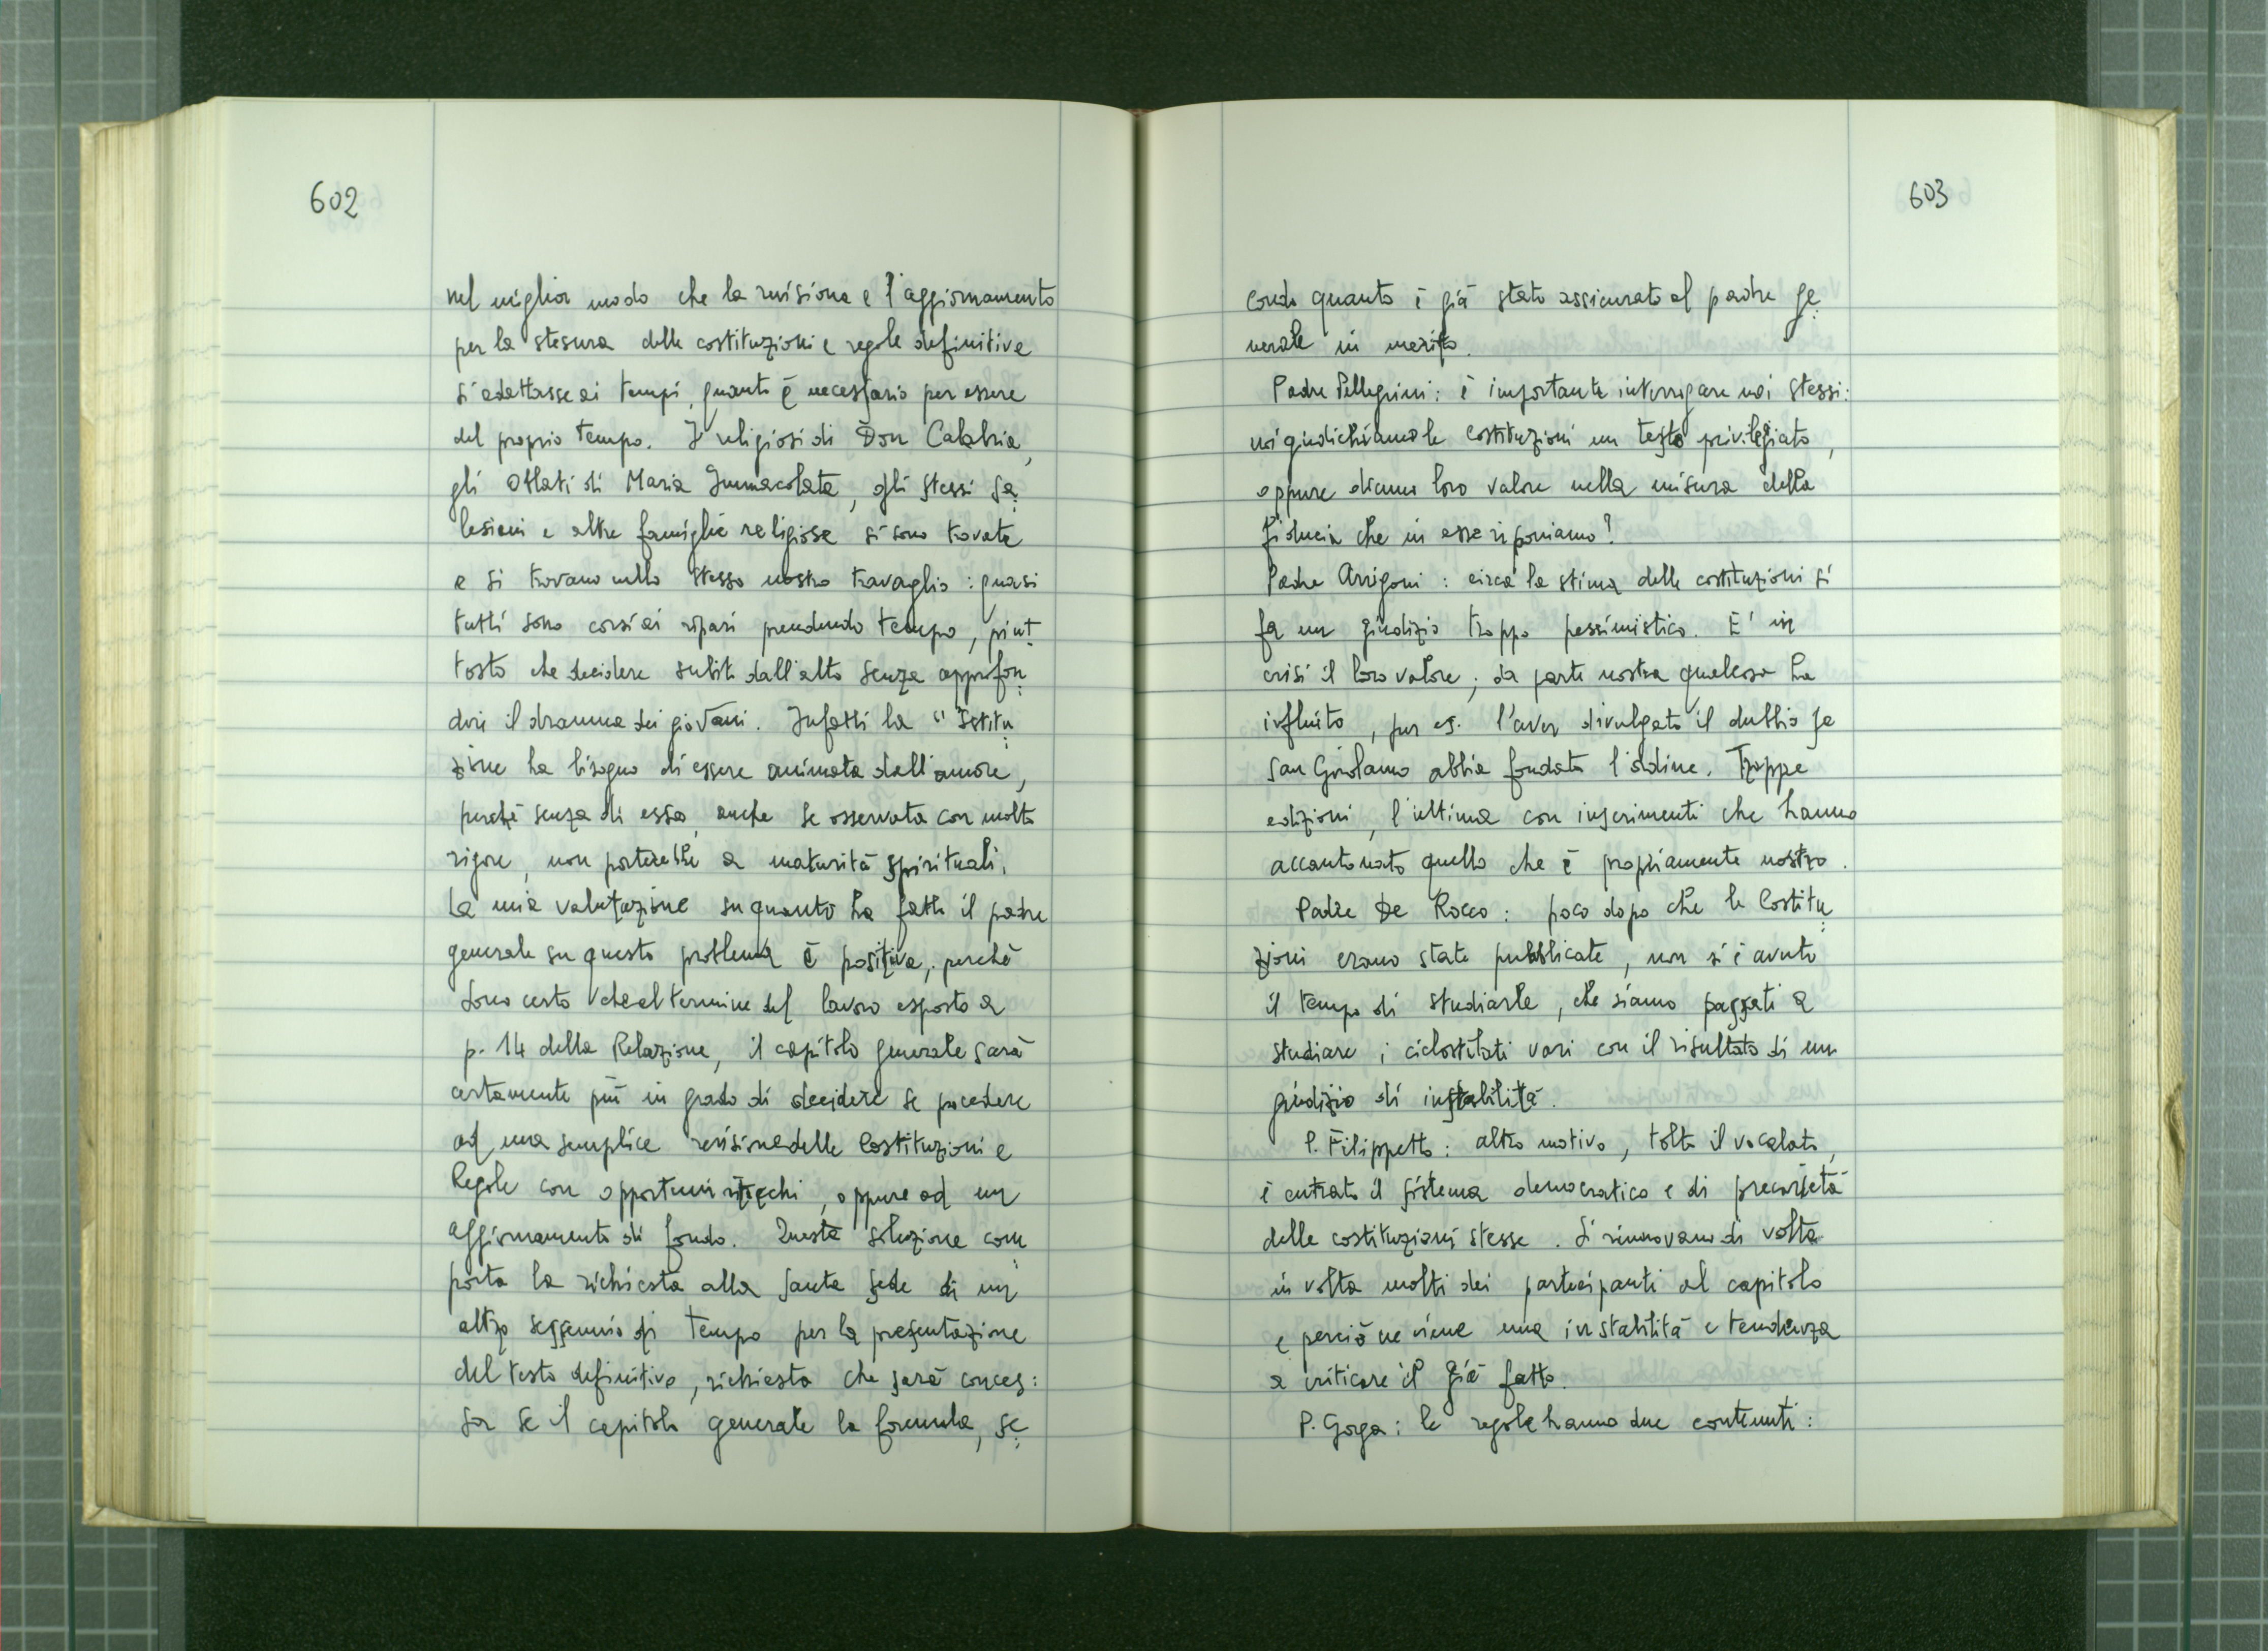 602
nel miglior modo che la revisione e l'aggiornamento
per la stesura delle costituzioni e regole definitive
si adattasse ai tempi, quanto è necessario per essere
del proprio tempo. I religiosi di Don Calabria,
gli Oblati di Maria Immacolata, gli stessi Sa
lesiani e altre famiglie religiose si sono trovate
e si trovano nello stesso nostro travaglio: quasi
tutti sono corsi ai ripari prendendo tempo, piut
tosto che decidere subito dall'alto senza approfon
dire il dramma dei giovani. Infatti la "Istitu
zione ha bisogno di essere animata dall'amore,
perché senza di esso, anche se osservata con molto
rigore, non porterebbe a maturità spirituali.
La mia valutazione su quanto ha fatto il padre
generale su questo problema è positiva, perché
sono certo che al termine del lavoro esposto a
p. 14 della Relazione, il capitolo generale sarà
certamente più in grado di decidere se procedere
ad una semplice revisione delle Costituzioni e
Regole con opportuni ritocchi, oppure ad un
aggiornamento di fondo. Questa soluzione com
porta la richiesta alla Santa Sede di un
altro sessennio di tempo per la presentazione
del testo definitivo, richiesta che sarà conces:
sa se il capitolo generale la formula, se
603
condo quanto è già stato assicurato al padre ge
nerale in merito.
Padre Pellegrini: è importante interrogare noi stessi:
noi giudichiamo le costituzioni un testo privilegiato,
oppure diamo loro valore nella misura della
fiducia che in esse riponiamo?
Padre Arrigoni: circa la stima delle costituzioni si
fa un giudizio troppo pessimistico. E' in
crisi il loro valore; da parte nostra qualcosa ha
influito, per es. l'aver divulgato il dubbio se
San Girolamo abbia fondato l'ordine. Troppe
edizioni, l'ultima con inserimenti che hanno
accantonato quello che è propriamente nostro.
Padre De Rocco: poco dopo che le Costitu
zioni erano state pubblicate, non si è avuto
il tempo di studiarle, che siamo passati a
studiare i ciclostilati vari con il risultato di un
giudizio di instabilità.
P. Filippetto: altro motivo, tolto il vocalato,
è entrato il sistema democratico e di precarietà
delle costituzioni stesse. Si rinnovano di volta
in volta molti dei partecipanti al capitolo
e perciò ne viene una instabilità e tendenza
a criticare il già fatto.
P. Gorga: le regole hanno due contenuti: